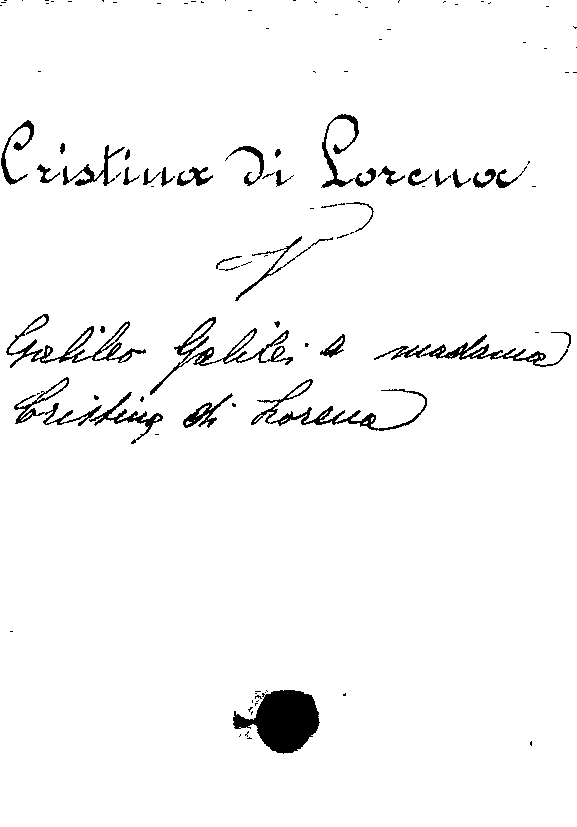 Cristina di Lorena
V
Galileo Galilei a madama
Cristina di Lorena